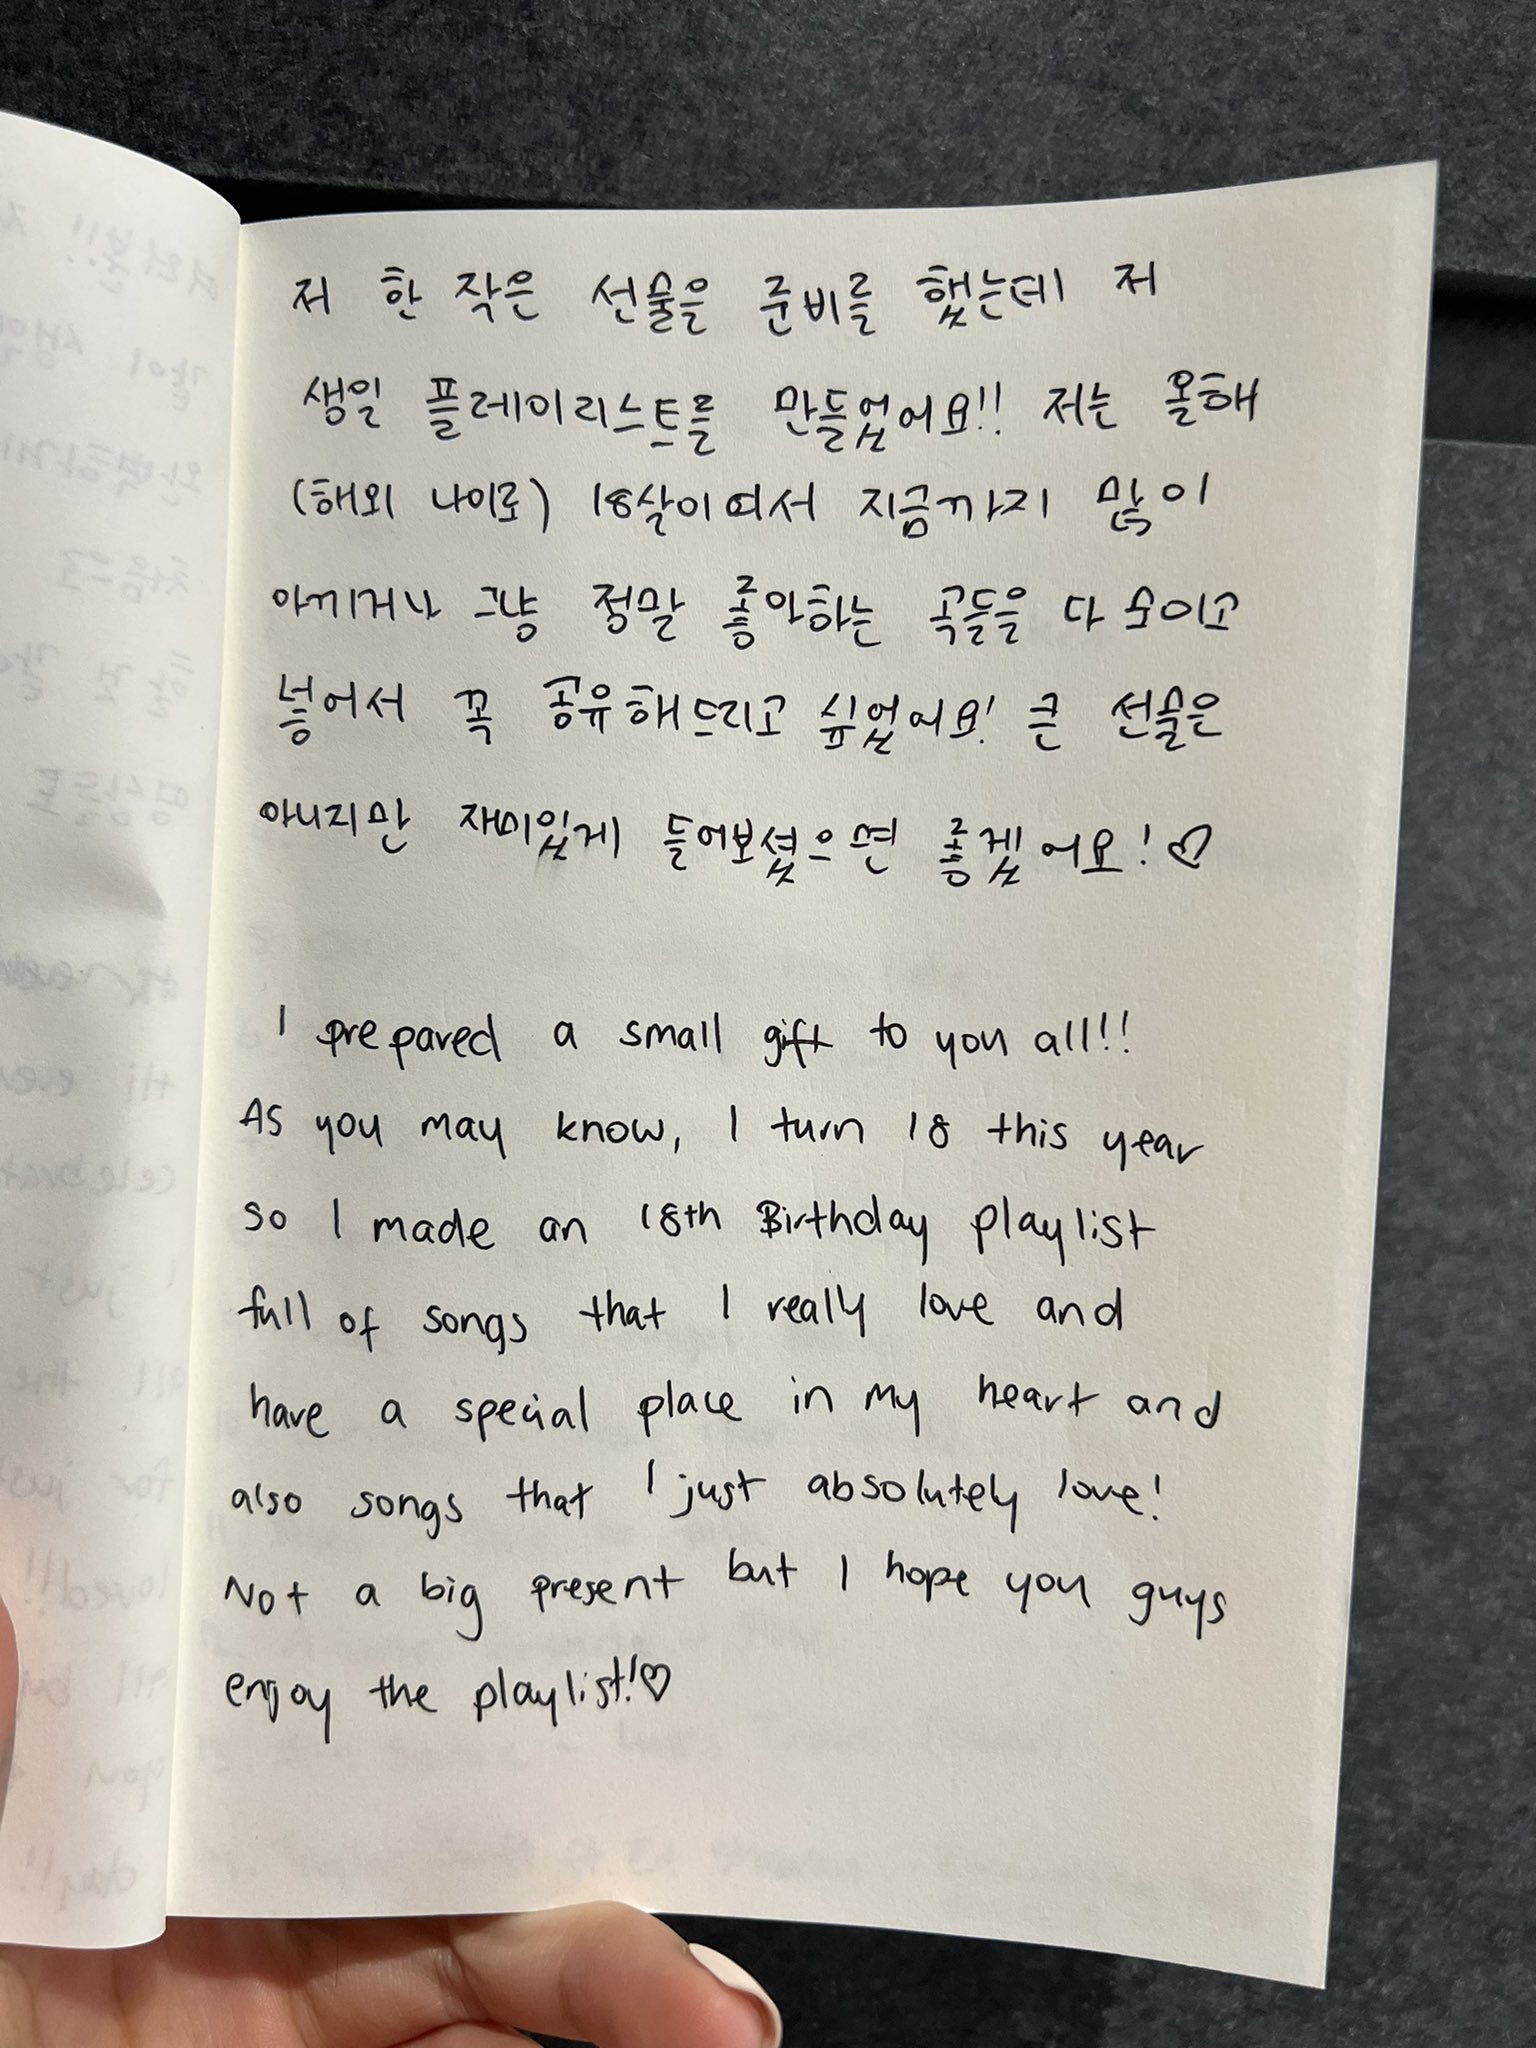 저 한 작은 선물을 준비를 했는데 저
생일 플레이리스트를 만들었어요!! 저는 올해
(해외 나이로) 18살이여서 지금까지 많이
아끼거나 그냥 정말 좋아하는 곡들을 다
넣어서 꼭 공유해드리고 싶었어요! 큰 선물은
아니지만 재미있게 들어보셨으면 좋겠어요! ♡
I prepared a small gift to you all!!
As you may know, I turn 18 this year
so I made an 18th Birthday playlist
full of songs that I really love and
have a special place in my heart and
also songs that I just absolutely love!
Not a big present but I hope you guys
enjoy the playlist!♡